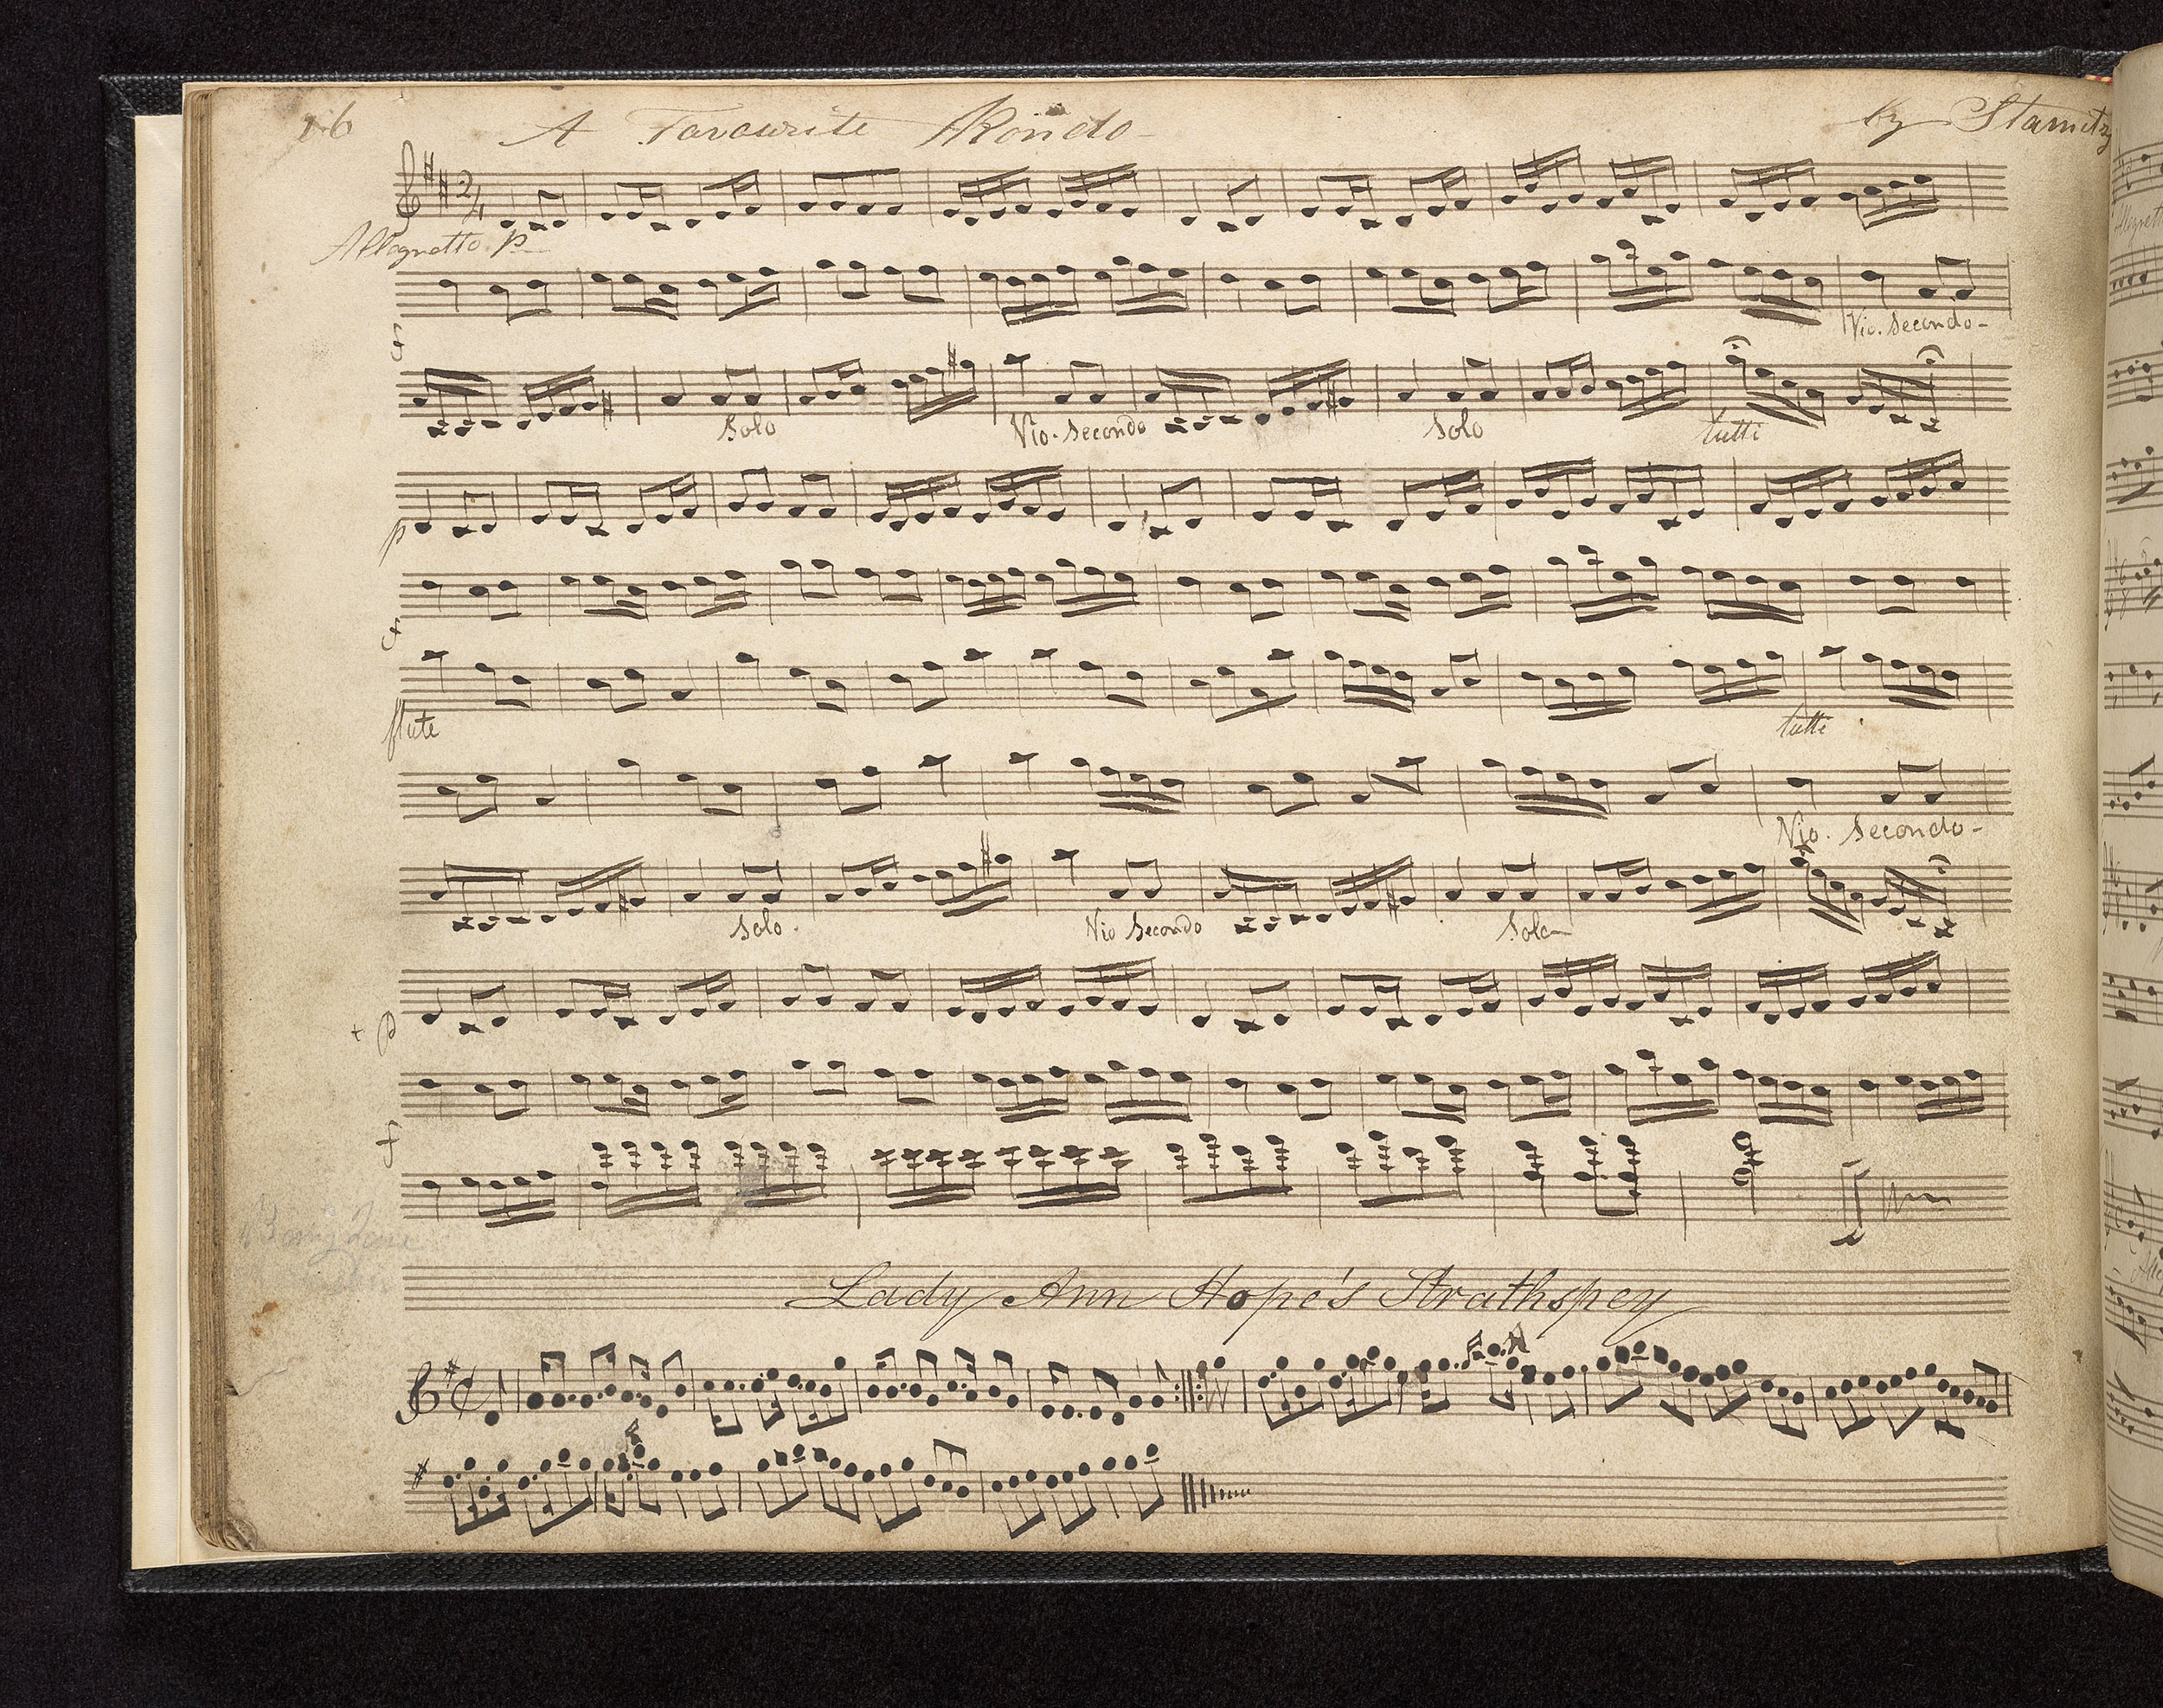 16 A Favourite Rondo by Stamitz
2/4
Allegretto p
f
Vio. Secondo
Solo Vio. Secondo Solo tutti
p
f
flute tutti
Vio. Secondo
Solo. Vio Secondo Solo
p
f
Lady Ann Hope's Strathspey